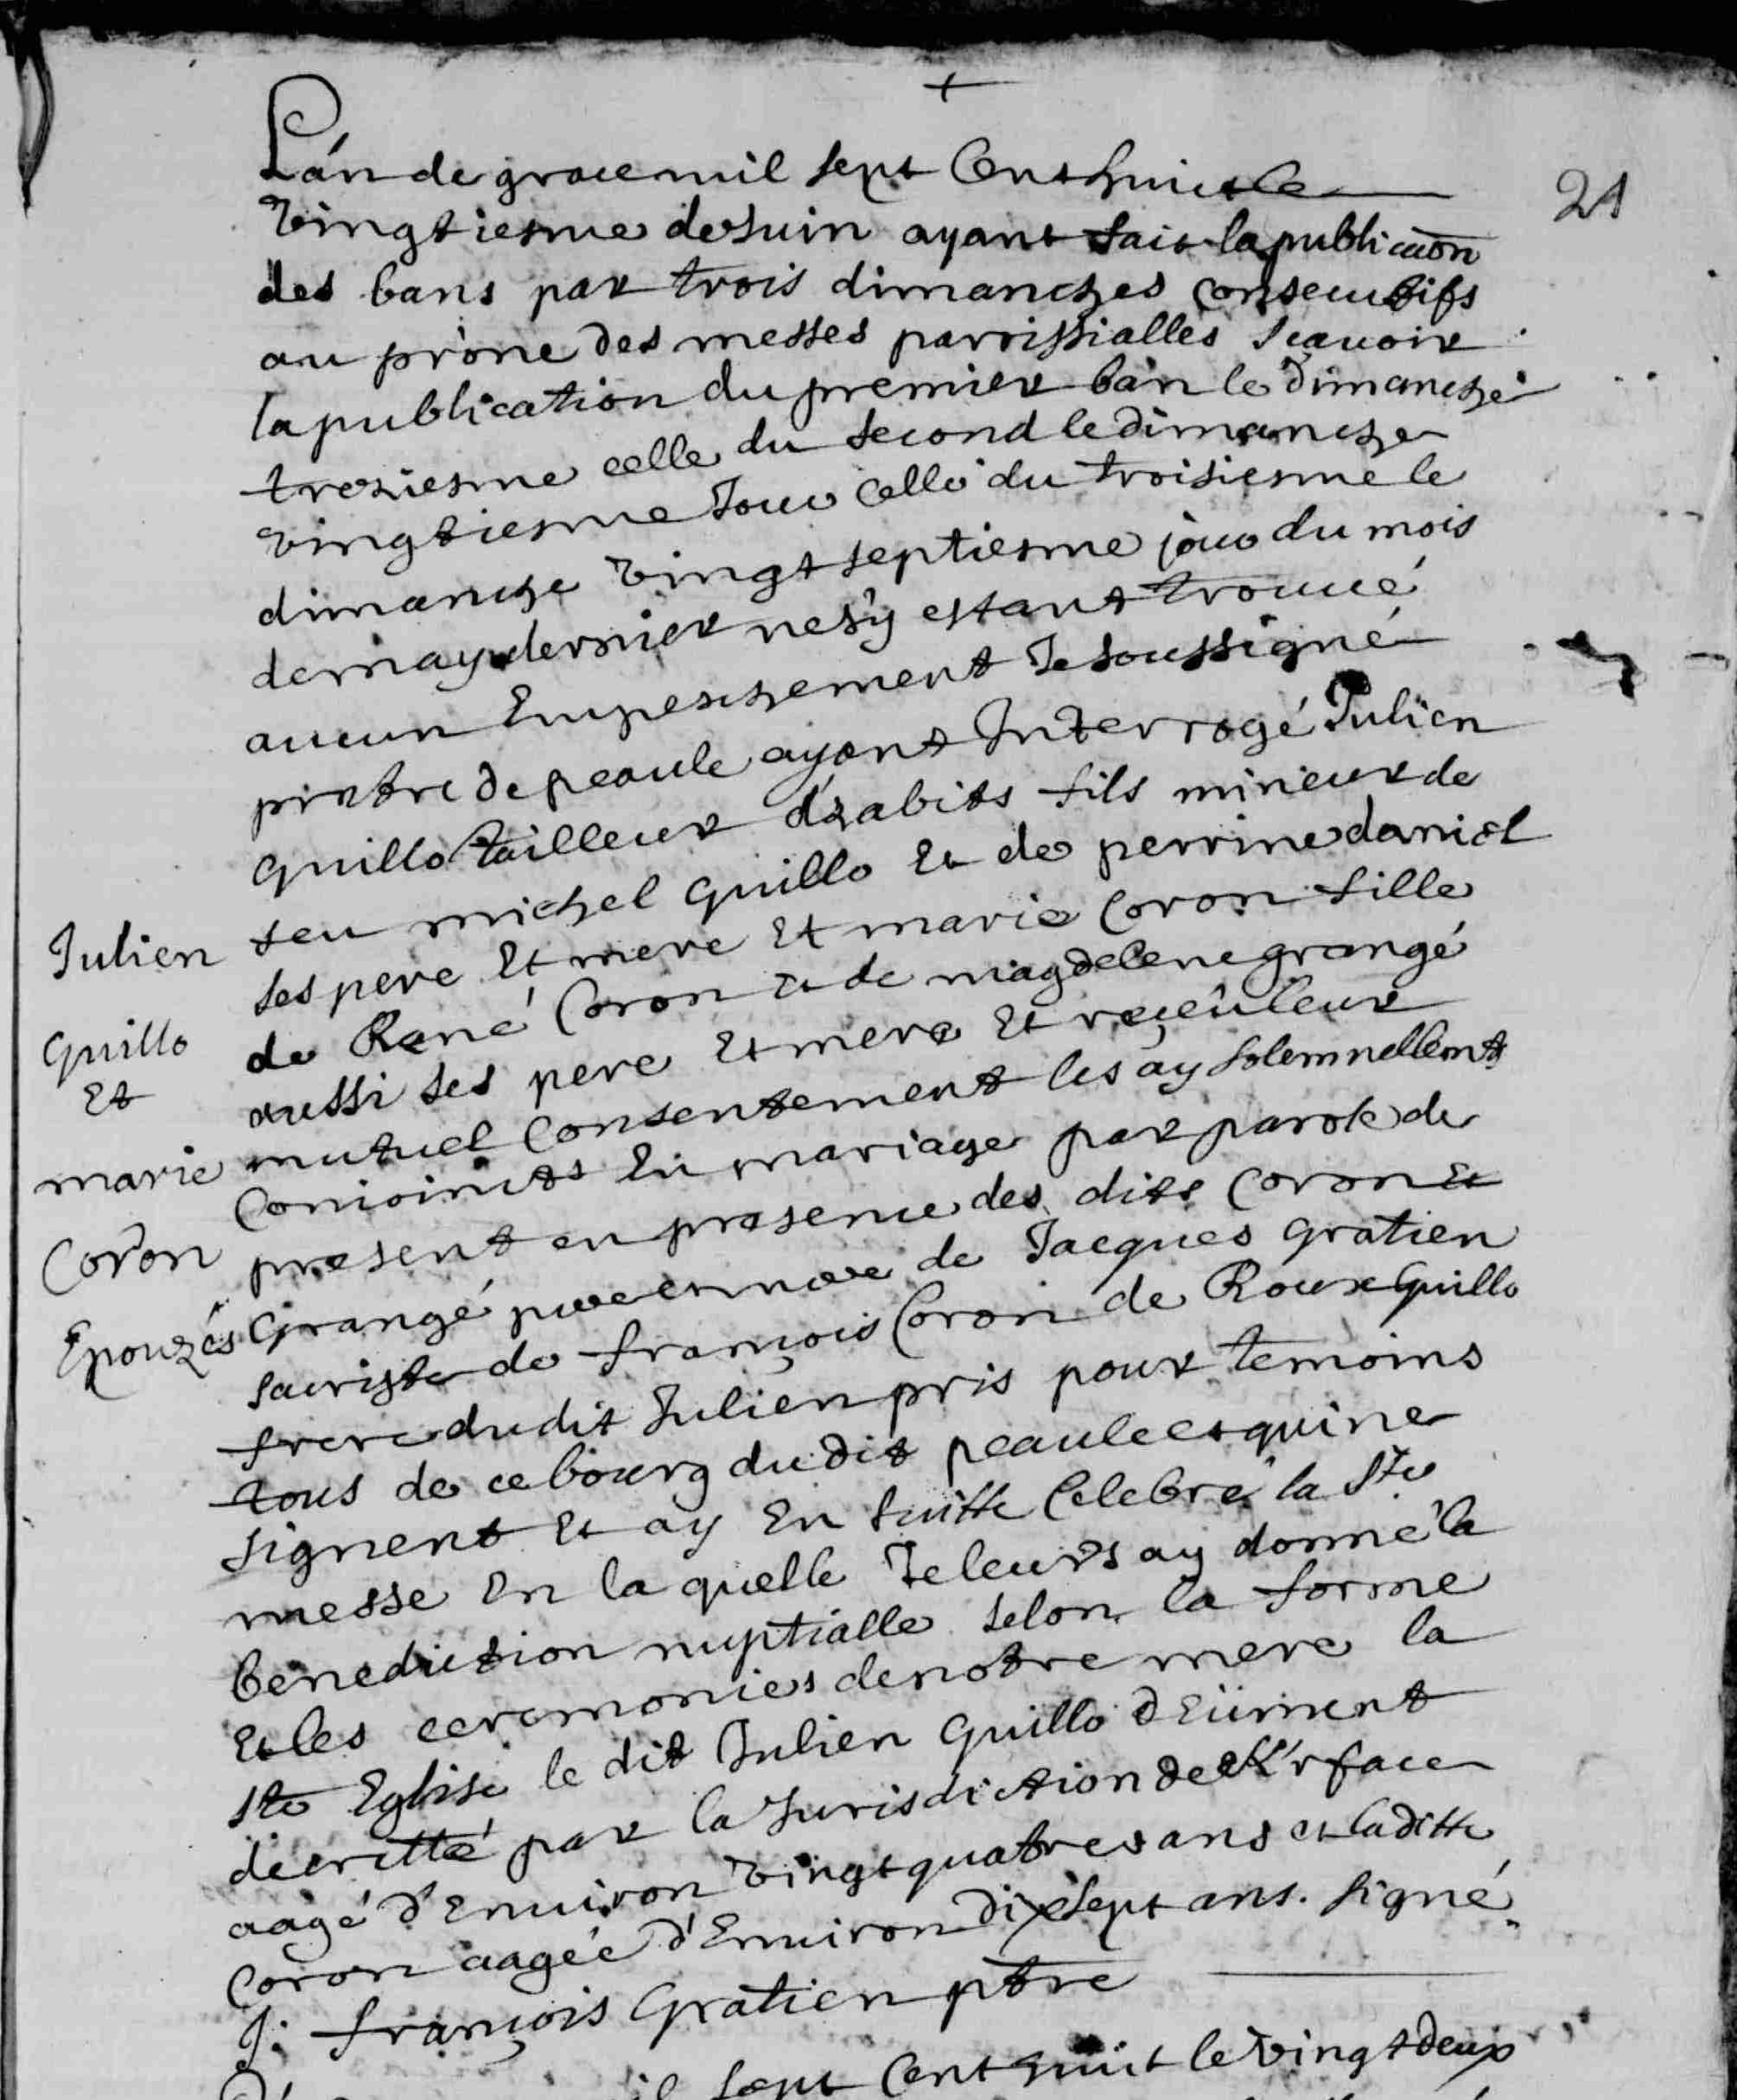 +
21
L'an de grace mil sept Cent huict le
vingtiesme de Iuin ayant fait la publicaõn
des bans par trois dimanches consecutifs
au prône des messes parroissialles sçauoir
la publication du premier ban le dimanche
treziesme celle du second le dimanche
vingtiesme Jour celle du troisiesme le
dimanche vingt septiesme jour du mois
de may dernier ne s'y estant trouué
aucun Empeschement Je soussigné
prestre de peaule ayant Interrogé Julien
Guillo tailleur d'habits fils mineur de
feu michel Guillo Et de perrine daniel
ses pere Et mere Et marie Coron fille
de René Coron Et de magdelene grangé
aussi ses pere Et mere Et reçeu leur
mutuel Consentement les ay solemnellemt
Conioincts En mariage par parole de
present en presence des dits Coron Et
Grangé pere et mere de Jacques Gratien
sacriste de françois Coron de Roux Guillo
frere du dit Julien pris pour temoins
tous de ce bourg du dit peaule et qui ne
signent Et ay En suitte Celebré la Ste
messe En la quelle Je leurs ay donné la
benediction nuptialle selon la forme
Et les ceremonies de notre mere la
Ste Eglise le dit Julien Guillo dEüment
decretté par la Jurisdiction de K'rface
aagé d'Enuiron vingt quatres ans et la ditte
Coron aagée d'Enuiron dix sept ans. signé
J: françois Gratien ptre
Julien
Guillo
Et
marie
Coron
Epouzés
sept Cent huit le vingt deux